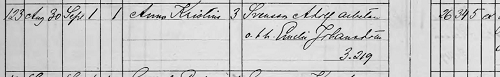 123 Aug 30 Sept 1 1 Anna Kristina 3 Svensson Adolf arbetare 26 345
o. h. h. Emelie Johansdotter
3.219